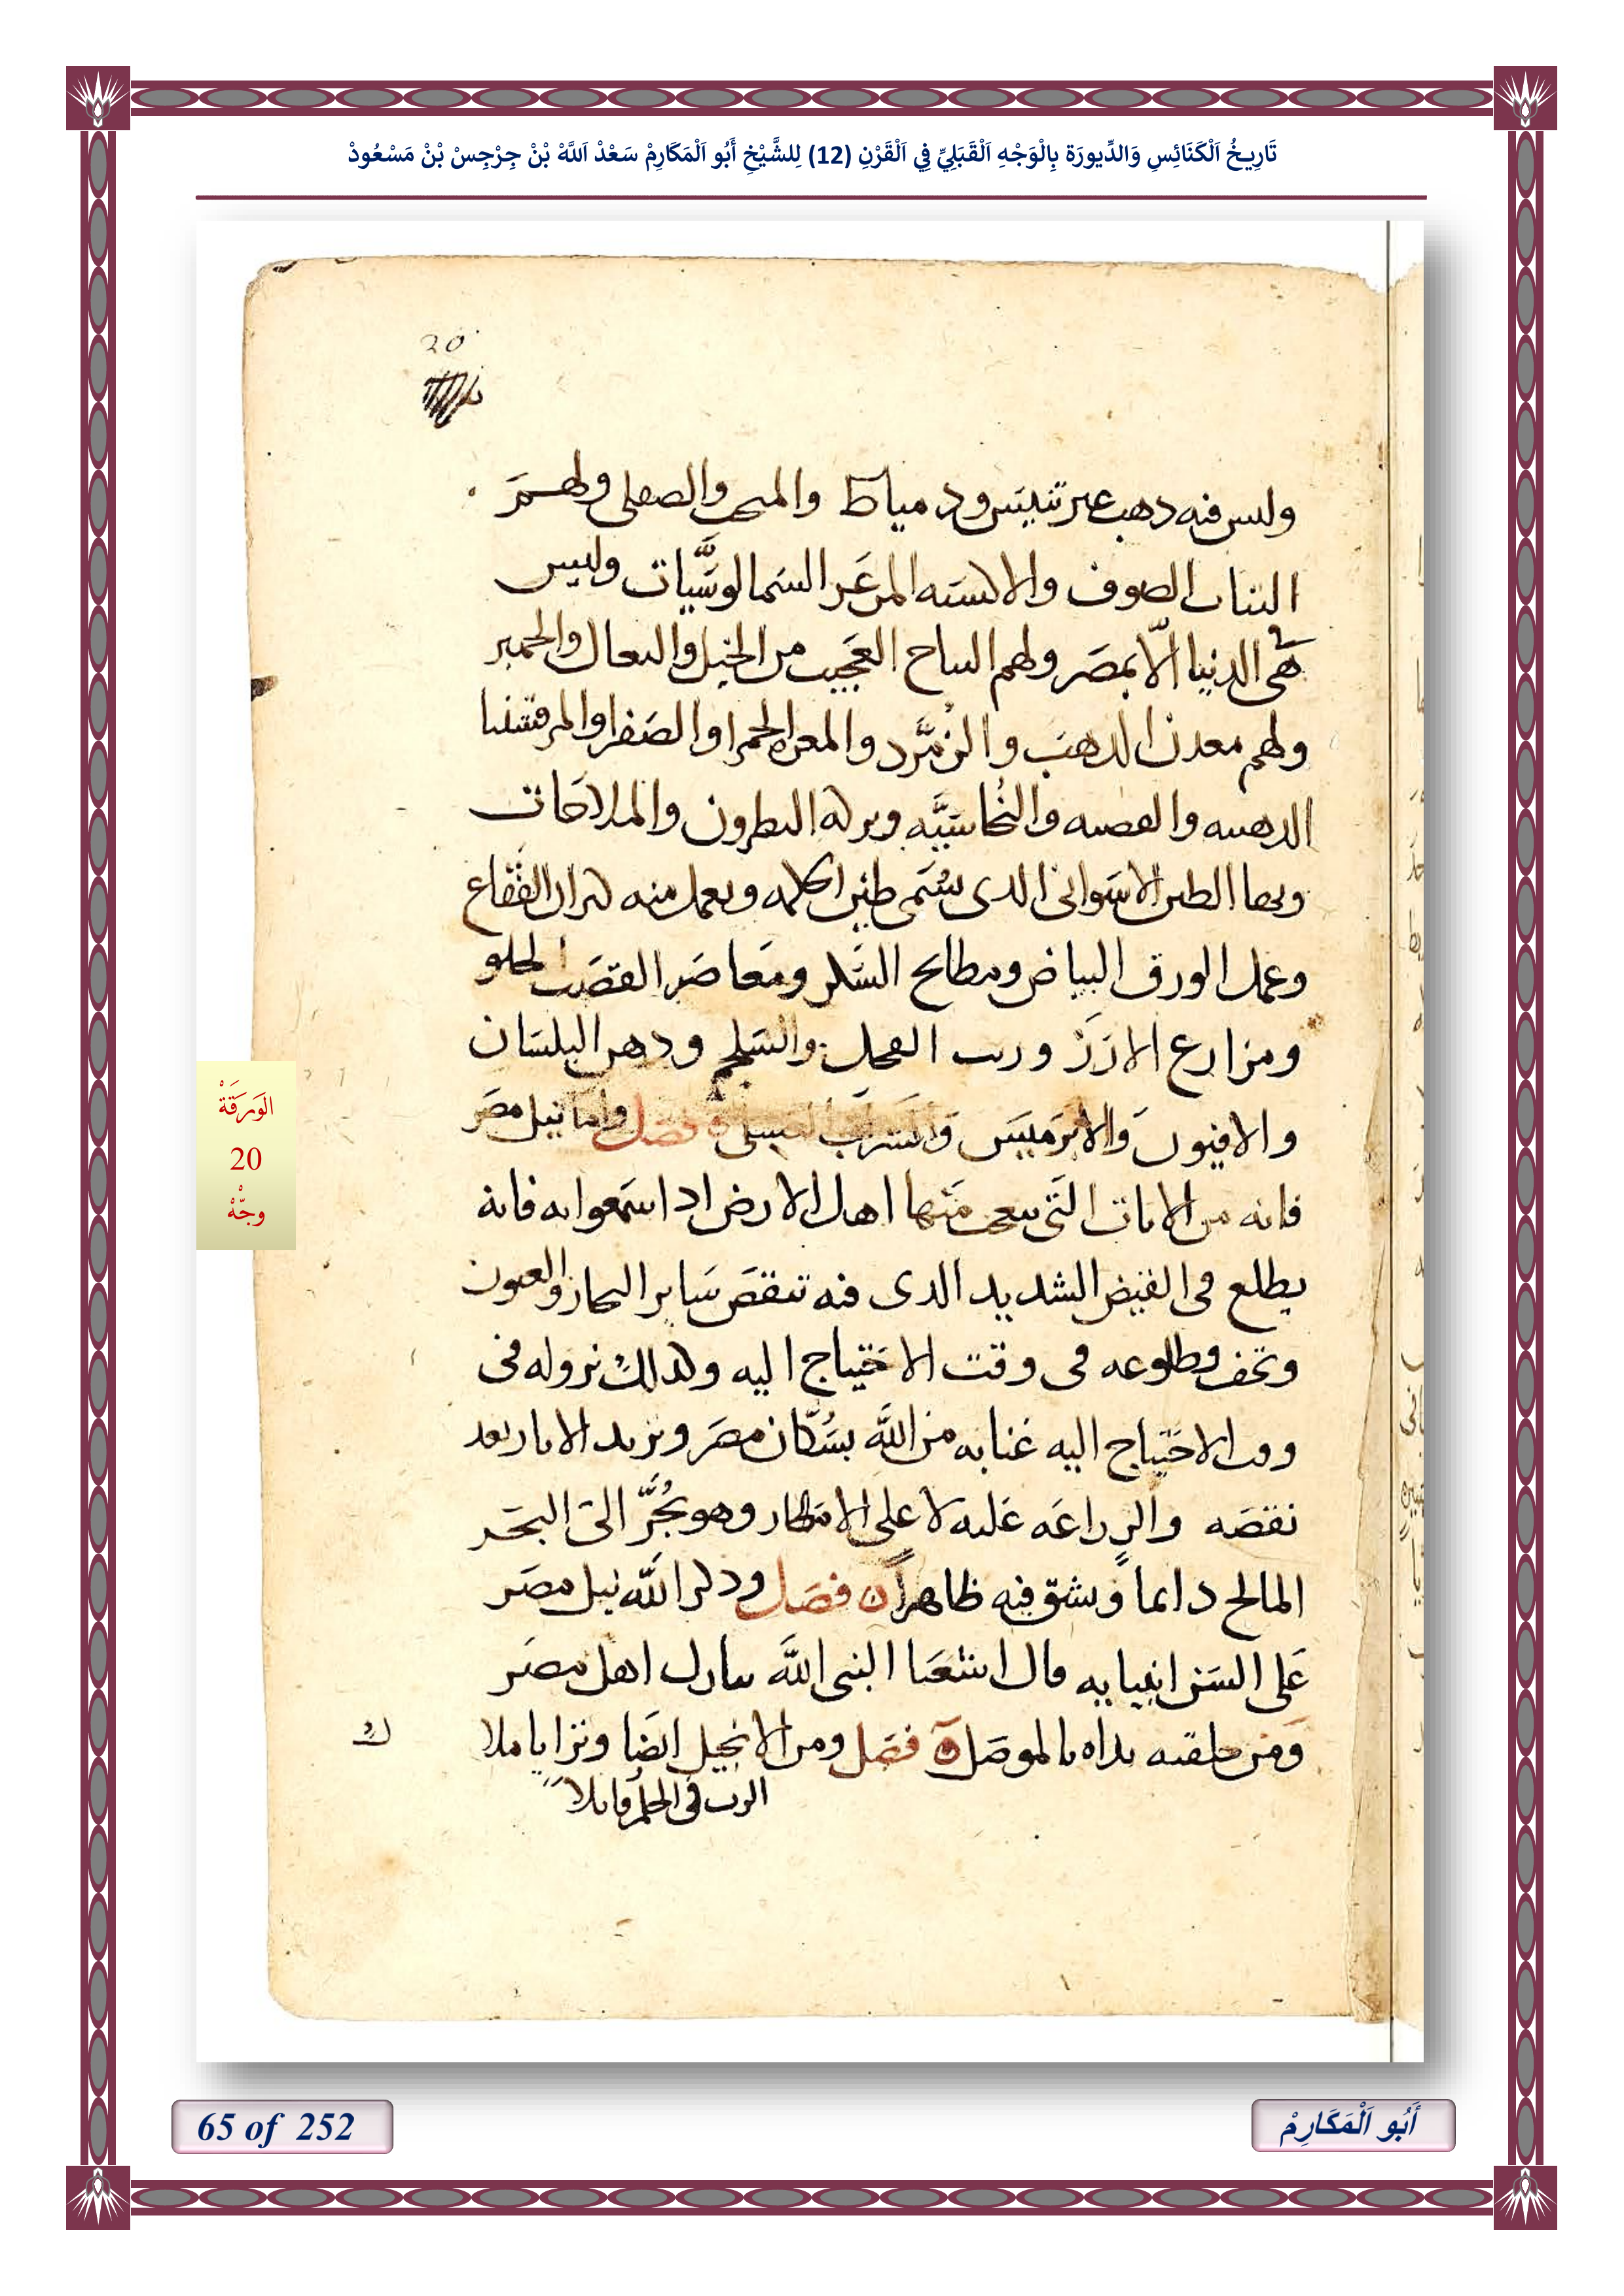 تَارِيخُ اَلْكَنَائِسِ وَالدِّيورَة بِالْوَجْهِ اَلْقَبَلِيِّ فِي اَلْقَرْنِ (12) لِلشَّيْخِ أَبُو اَلْمَكَارِمْ سَعْدْ اَللَّهْ بْنْ جِرْجِسْ بْنْ مَسْعُودْ
20
ولىس فىه دهب عىر تنيَس ودمياط والمى والصقلى ولهمَر
الثياب الصوف والاكسَىه المرعَز السَما لوسَّيات وليس
هَى الدنيا الّا بمصَر ولهم النتاج العَجيب من الخيل والبعال والحمير
ولهم معدن الدهبَ والزمَّرد والمعره الحمرا والصَفرا والمرقشيىا
الدهبىه والفصىه والنُحاسَيَّه وبركه النطرون والملاحَات
وبها الطين الاسَوانى الدى يسَُمى طين الحكمه ويعمل منه كيزان الفُقاع
وعمل الورق البياض ومطابح السَكر ومَعاصَر القصَب الحلو
ومزارع الارَزَ وزيت الفجل والسَلجم ودهن البلسَان
والافيون وَالابرَميسَ وَالشَراب العَسلى ٥ فصَل واما نيل مصَر
فانه من الايات التَى يىعجب مَنها اهل الارض ادا سَمعوا به فانه
يطلع فى القيض الشديد الدى فىه تنقصَ سَاير البحار والعيون
وتجف وطلوعه فى وقت الاحَتياج اليه وكدلك نزوله فى
وقت الاحَتياج اليه عنايه من اللَّه بسُكّان مصَر وتزيد الابار بعد
نقصَه والزراعَه عَليه لا على الامَطار وهو يُجَرّ الىَ البحَر
المالح دايمًا وَيشق فيه ظاهراً ٥ فصَل ودكر اللَّه نيل مصَر
عَلى السَن انبيايه قال اشعَىا النبى اللَّه ىبارك اهل مصَر
وَمَن خلقىه ىداه بالموصَل ٥ فصَل ومن الانجيل ايضَا وتزايا ملا
الرب فى الحلم قايلاً
الوَرَقَةْ
20
وجّهْ
65 of 252
أَبُو اَلْمَكَارِمْ